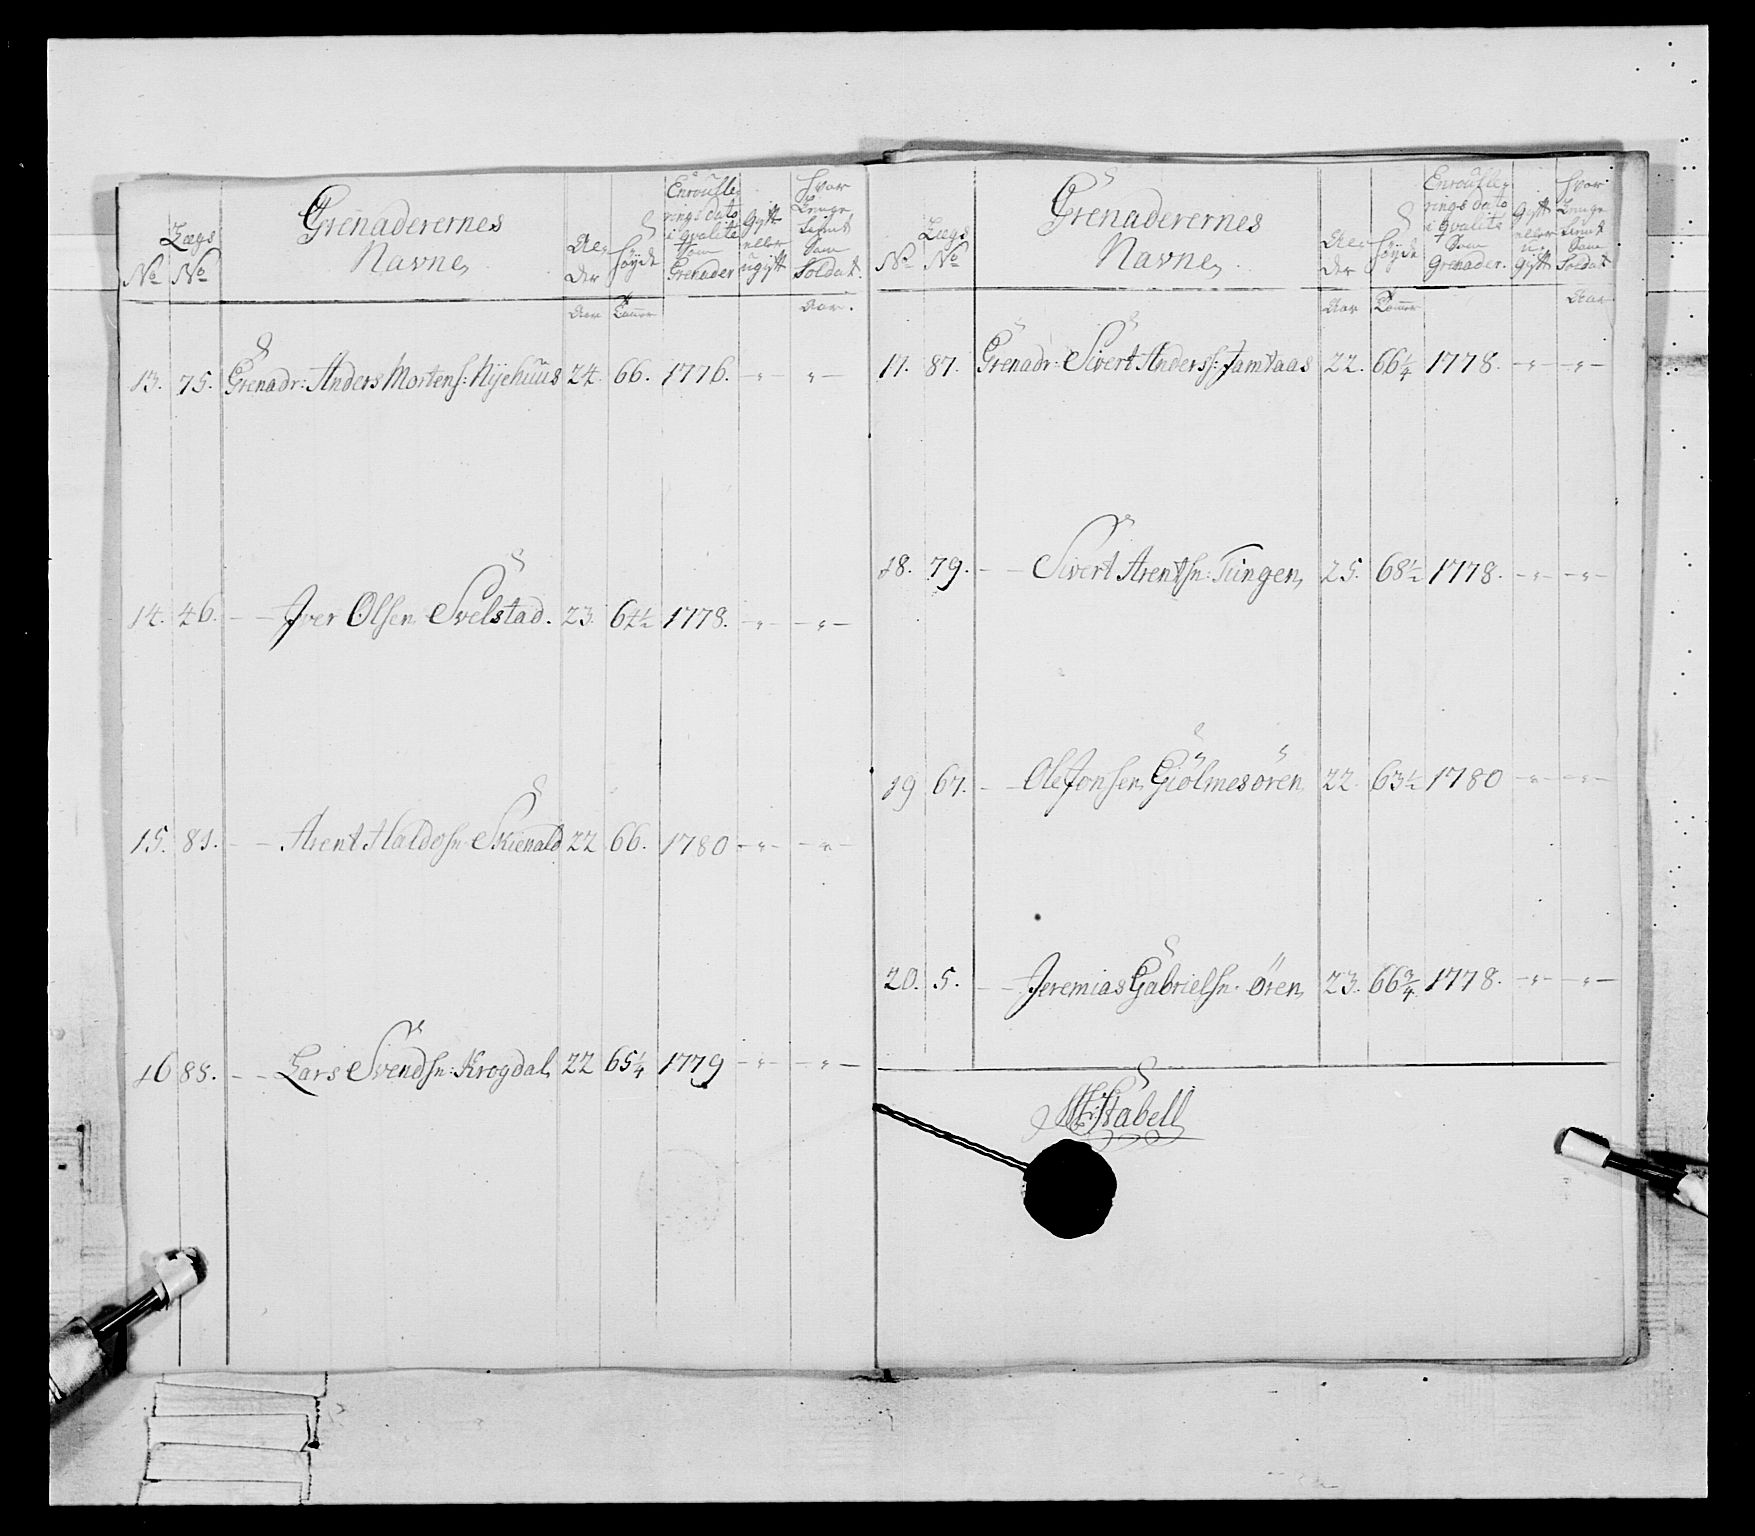 No
Lægs No
Grenaderernes Navne,
Al-der
Høyde
Enroulle-rings dato i qvalite som Grenader
Gift eller ugift
Hvor Lenge tient Som Soldat.
Aar
Tommer
Aar.
13. 75. Grenadr: Anders Mortens: Nÿehuus 24. 66. 1776. -"- -"-
14. 46. - - Iver Olsen Svelstad. 23. 64½ 1778. -"- -"-
15. 81. - - Arent Haldosn: Skienald 22 66. 1780 -"- -"-
16 85. - - Lars Svendsn: Krogdal, 22 65¼ 1779 -"- -"-
No
Lægs No
Grenaderernes Navne,
Al-der
Høyde
Enroulle-rings dato i qvalite Som Grenader.
Gift eller u-gift
Hvor Lenge tient Som Soldat
Aar
Tommer
Aar
17. 87. Grenadr: Sivert Anders: Jamtaas 22. 66¼ 1778. -"- -"-
18. 79. - - Sivert Arentsn: Tungen, 25. 68½ 1778. -"- -"-
19 67. - - Ole Jonsen Giølmesøren 22. 63½ 1780 -"- -"-
20. 5. - - Jeremias Gabrielsn: Ören, 23. 66¾ 1778. -"- -"-
Stabell